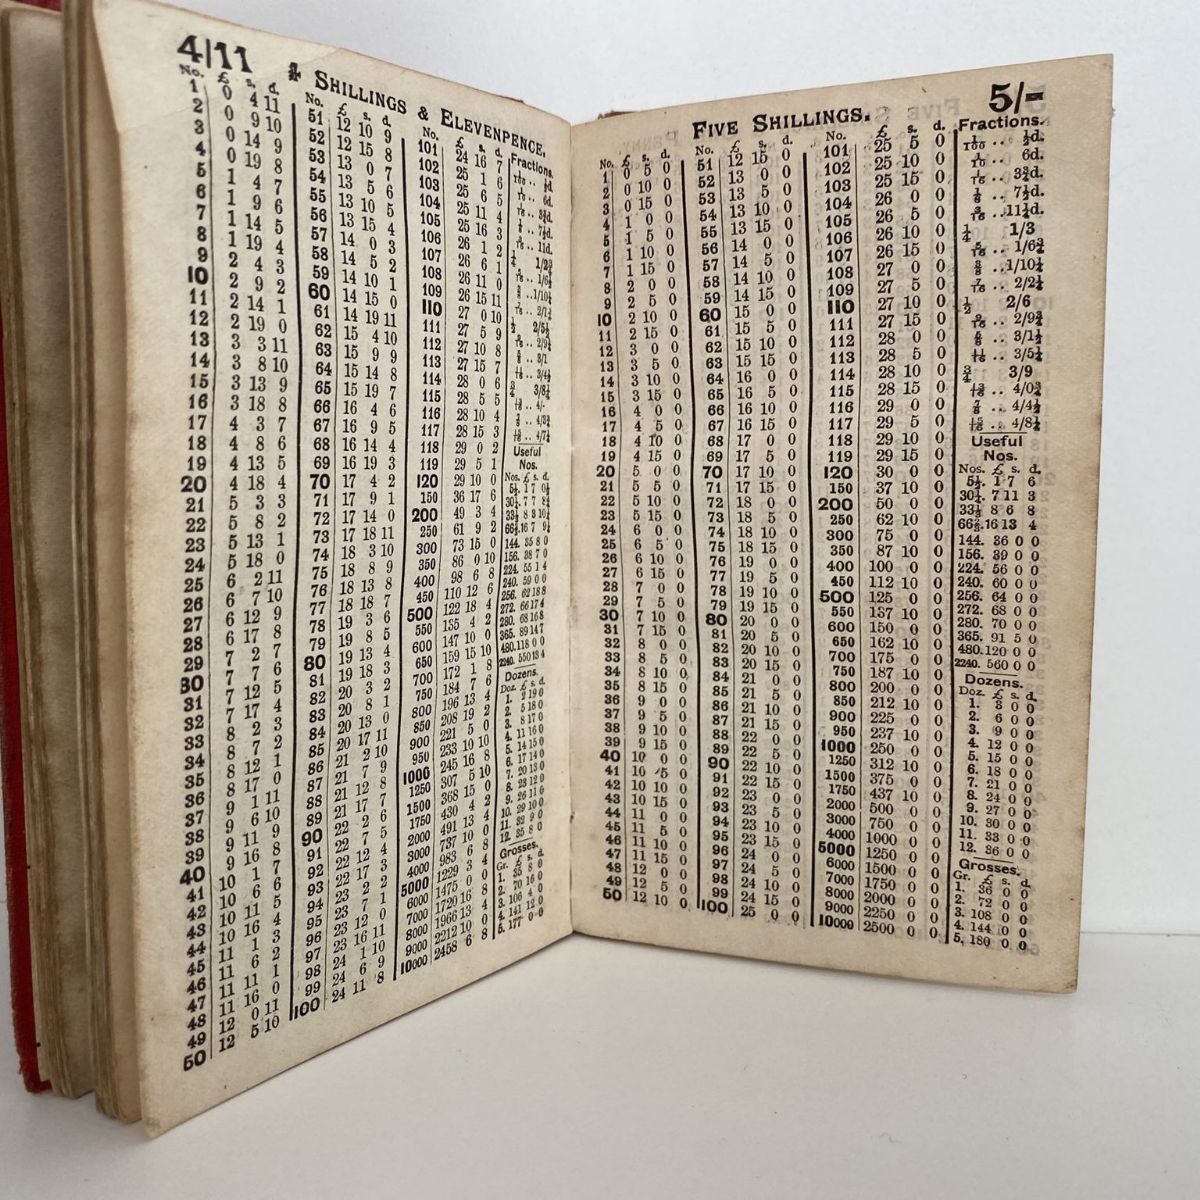 4/11
4 SHILLINGS & ELEVENPENCE.
No. £ s. d.
1 0 4 11
2 0 9 10
3 0 14 9
4 0 19 8
5 1 4 7
6 1 9 6
7 1 14 5
8 1 19 4
9 2 4 3
10 2 9 2
11 2 14 1
12 2 19 0
13 3 3 11
14 3 8 10
15 3 13 9
16 3 18 8
17 4 3 7
18 4 8 6
19 4 13 5
20 4 18 4
21 5 3 3
22 5 8 2
23 5 13 1
24 5 18 0
25 6 2 11
26 6 7 10
27 6 12 9
28 6 17 8
29 7 2 7
30 7 7 6
31 7 12 5
32 7 17 4
33 8 2 3
34 8 7 2
35 8 12 1
36 8 17 0
37 9 1 11
38 9 6 10
39 9 11 9
40 9 16 8
41 10 1 7
42 10 6 6
43 10 11 5
44 10 16 4
45 11 1 3
46 11 6 2
47 11 11 1
48 11 16 0
49 12 0 11
50 12 5 10
No. £ s. d.
51 12 10 9
52 12 15 8
53 13 0 7
54 13 5 6
55 13 10 5
56 13 15 4
57 14 0 3
58 14 5 2
59 14 10 1
60 14 15 0
61 14 19 11
62 15 4 10
63 15 9 9
64 15 14 8
65 15 19 7
66 16 4 6
67 16 9 5
68 16 14 4
69 16 19 3
70 17 4 2
71 17 9 1
72 17 14 0
73 17 18 11
74 18 3 10
75 18 8 9
76 18 13 8
77 18 18 7
78 19 3 6
79 19 8 5
80 19 13 4
81 19 18 3
82 20 3 2
83 20 8 1
84 20 13 0
85 20 17 11
86 21 2 10
87 21 7 9
88 21 12 8
89 21 17 7
90 22 2 6
91 22 7 5
92 22 12 4
93 22 17 3
94 23 2 2
95 23 7 1
96 23 12 0
97 23 16 11
98 24 1 10
99 24 6 9
100 24 11 8
No. £ s. d.
101 24 16 7
102 25 1 6
103 25 6 5
104 25 11 4
105 25 16 3
106 26 1 2
107 26 6 1
108 26 11 0
109 26 15 11
110 27 0 10
111 27 5 9
112 27 10 8
113 27 15 7
114 28 0 6
115 28 5 5
116 28 10 4
117 28 15 3
118 29 0 2
119 29 5 1
120 29 10 0
150 36 17 6
200 49 3 4
250 61 9 2
300 73 15 0
350 86 0 10
400 98 6 8
450 110 12 6
500 122 18 4
550 135 4 2
600 147 10 0
650 159 15 10
700 172 1 8
750 184 7 6
800 196 13 4
850 208 19 2
900 221 5 0
950 233 10 10
1000 245 16 8
1250 307 5 10
1500 368 15 0
1750 430 4 2
2000 491 13 4
3000 737 10 0
4000 983 6 8
5000 1229 3 4
6000 1475 0 0
7000 1720 16 8
8000 1966 13 4
9000 2212 10 0
10000 2458 6 8
Fractions.
Useful
Nos.
Nos. £ s. d.
144. 35 8 0
156. 38 7 0
224. 55 1 4
240. 59 0 0
256. 62 18 8
272. 66 17 4
280. 68 16 8
365. 89 14 7
480. 118 0 0
2240. 550 13 4
Dozens.
Doz. £ s. d.
1. 2 19 0
2. 5 18 0
3. 8 17 0
4. 11 16 0
5. 14 15 0
6. 17 14 0
7. 20 13 0
8. 23 12 0
9. 26 11 0
10. 29 10 0
11. 32 9 0
12. 35 8 0
Grosses.
Gr. £ s. d.
1. 35 8 0
2. 70 16 0
3. 106 4 0
4. 141 12 0
5. 177 0 0
5/-
FIVE SHILLINGS.
No. £ s. d.
1 0 5 0
2 0 10 0
3 0 15 0
4 1 0 0
5 1 5 0
6 1 10 0
7 1 15 0
8 2 0 0
9 2 5 0
10 2 10 0
11 2 15 0
12 3 0 0
13 3 5 0
14 3 10 0
15 3 15 0
16 4 0 0
17 4 5 0
18 4 10 0
19 4 15 0
20 5 0 0
21 5 5 0
22 5 10 0
23 5 15 0
24 6 0 0
25 6 5 0
26 6 10 0
27 6 15 0
28 7 0 0
29 7 5 0
30 7 10 0
31 7 15 0
32 8 0 0
33 8 5 0
34 8 10 0
35 8 15 0
36 9 0 0
37 9 5 0
38 9 10 0
39 9 15 0
40 10 0 0
41 10 5 0
42 10 10 0
43 10 15 0
44 11 0 0
45 11 5 0
46 11 10 0
47 11 15 0
48 12 0 0
49 12 5 0
50 12 10 0
No. £ s. d.
51 12 15 0
52 13 0 0
53 13 5 0
54 13 10 0
55 13 15 0
56 14 0 0
57 14 5 0
58 14 10 0
59 14 15 0
60 15 0 0
61 15 5 0
62 15 10 0
63 15 15 0
64 16 0 0
65 16 5 0
66 16 10 0
67 16 15 0
68 17 0 0
69 17 5 0
70 17 10 0
71 17 15 0
72 18 0 0
73 18 5 0
74 18 10 0
75 18 15 0
76 19 0 0
77 19 5 0
78 19 10 0
79 19 15 0
80 20 0 0
81 20 5 0
82 20 10 0
83 20 15 0
84 21 0 0
85 21 5 0
86 21 10 0
87 21 15 0
88 22 0 0
89 22 5 0
90 22 10 0
91 22 15 0
92 23 0 0
93 23 5 0
94 23 10 0
95 23 15 0
96 24 0 0
97 24 5 0
98 24 10 0
99 24 15 0
100 25 0 0
No. £ s. d.
101 25 5 0
102 25 10 0
103 25 15 0
104 26 0 0
105 26 5 0
106 26 10 0
107 26 15 0
108 27 0 0
109 27 5 0
110 27 10 0
111 27 15 0
112 28 0 0
113 28 5 0
114 28 10 0
115 28 15 0
116 29 0 0
117 29 5 0
118 29 10 0
119 29 15 0
120 30 0 0
150 37 10 0
200 50 0 0
250 62 10 0
300 75 0 0
350 87 10 0
400 100 0 0
450 112 10 0
500 125 0 0
550 137 10 0
600 150 0 0
650 162 10 0
700 175 0 0
750 187 10 0
800 200 0 0
850 212 10 0
900 225 0 0
950 237 10 0
1000 250 0 0
1250 312 10 0
1500 375 0 0
1750 437 10 0
2000 500 0 0
3000 750 0 0
4000 1000 0 0
5000 1250 0 0
6000 1500 0 0
7000 1750 0 0
8000 2000 0 0
9000 2250 0 0
10000 2500 0 0
Fractions.
1/100 .. ½d.
1/10 .. 6d.
1/16 .. 3¾d.
⅛ .. 7½d.
3/16 .. 11¼d.
¼ 1/3
5/16 .. 1/6¾
⅜ .. 1/10½
7/16 .. 2/2¼
½ 2/6
9/16 .. 2/9¾
⅝ .. 3/1½
11/16 .. 3/5¼
¾ 3/9
13/16 .. 4/0¾
⅞ .. 4/4½
15/16 .. 4/8¼
Useful
Nos.
Nos. £ s. d.
5½. 1 7 6
30¼. 7 11 3
33⅓ 8 6 8
66⅔. 16 13 4
144. 36 0 0
156. 39 0 0
224. 56 0 0
240. 60 0 0
256. 64 0 0
272. 68 0 0
280. 70 0 0
365. 91 5 0
480. 120 0 0
2240. 560 0 0
Dozens.
Doz. £ s. d.
1. 3 0 0
2. 6 0 0
3. 9 0 0
4. 12 0 0
5. 15 0 0
6. 18 0 0
7. 21 0 0
8. 24 0 0
9. 27 0 0
10. 30 0 0
11. 33 0 0
12. 36 0 0
Grosses.
Gr. £ s. d.
1. 36 0 0
2. 72 0 0
3. 108 0 0
4. 144 0 0
5. 180 0 0